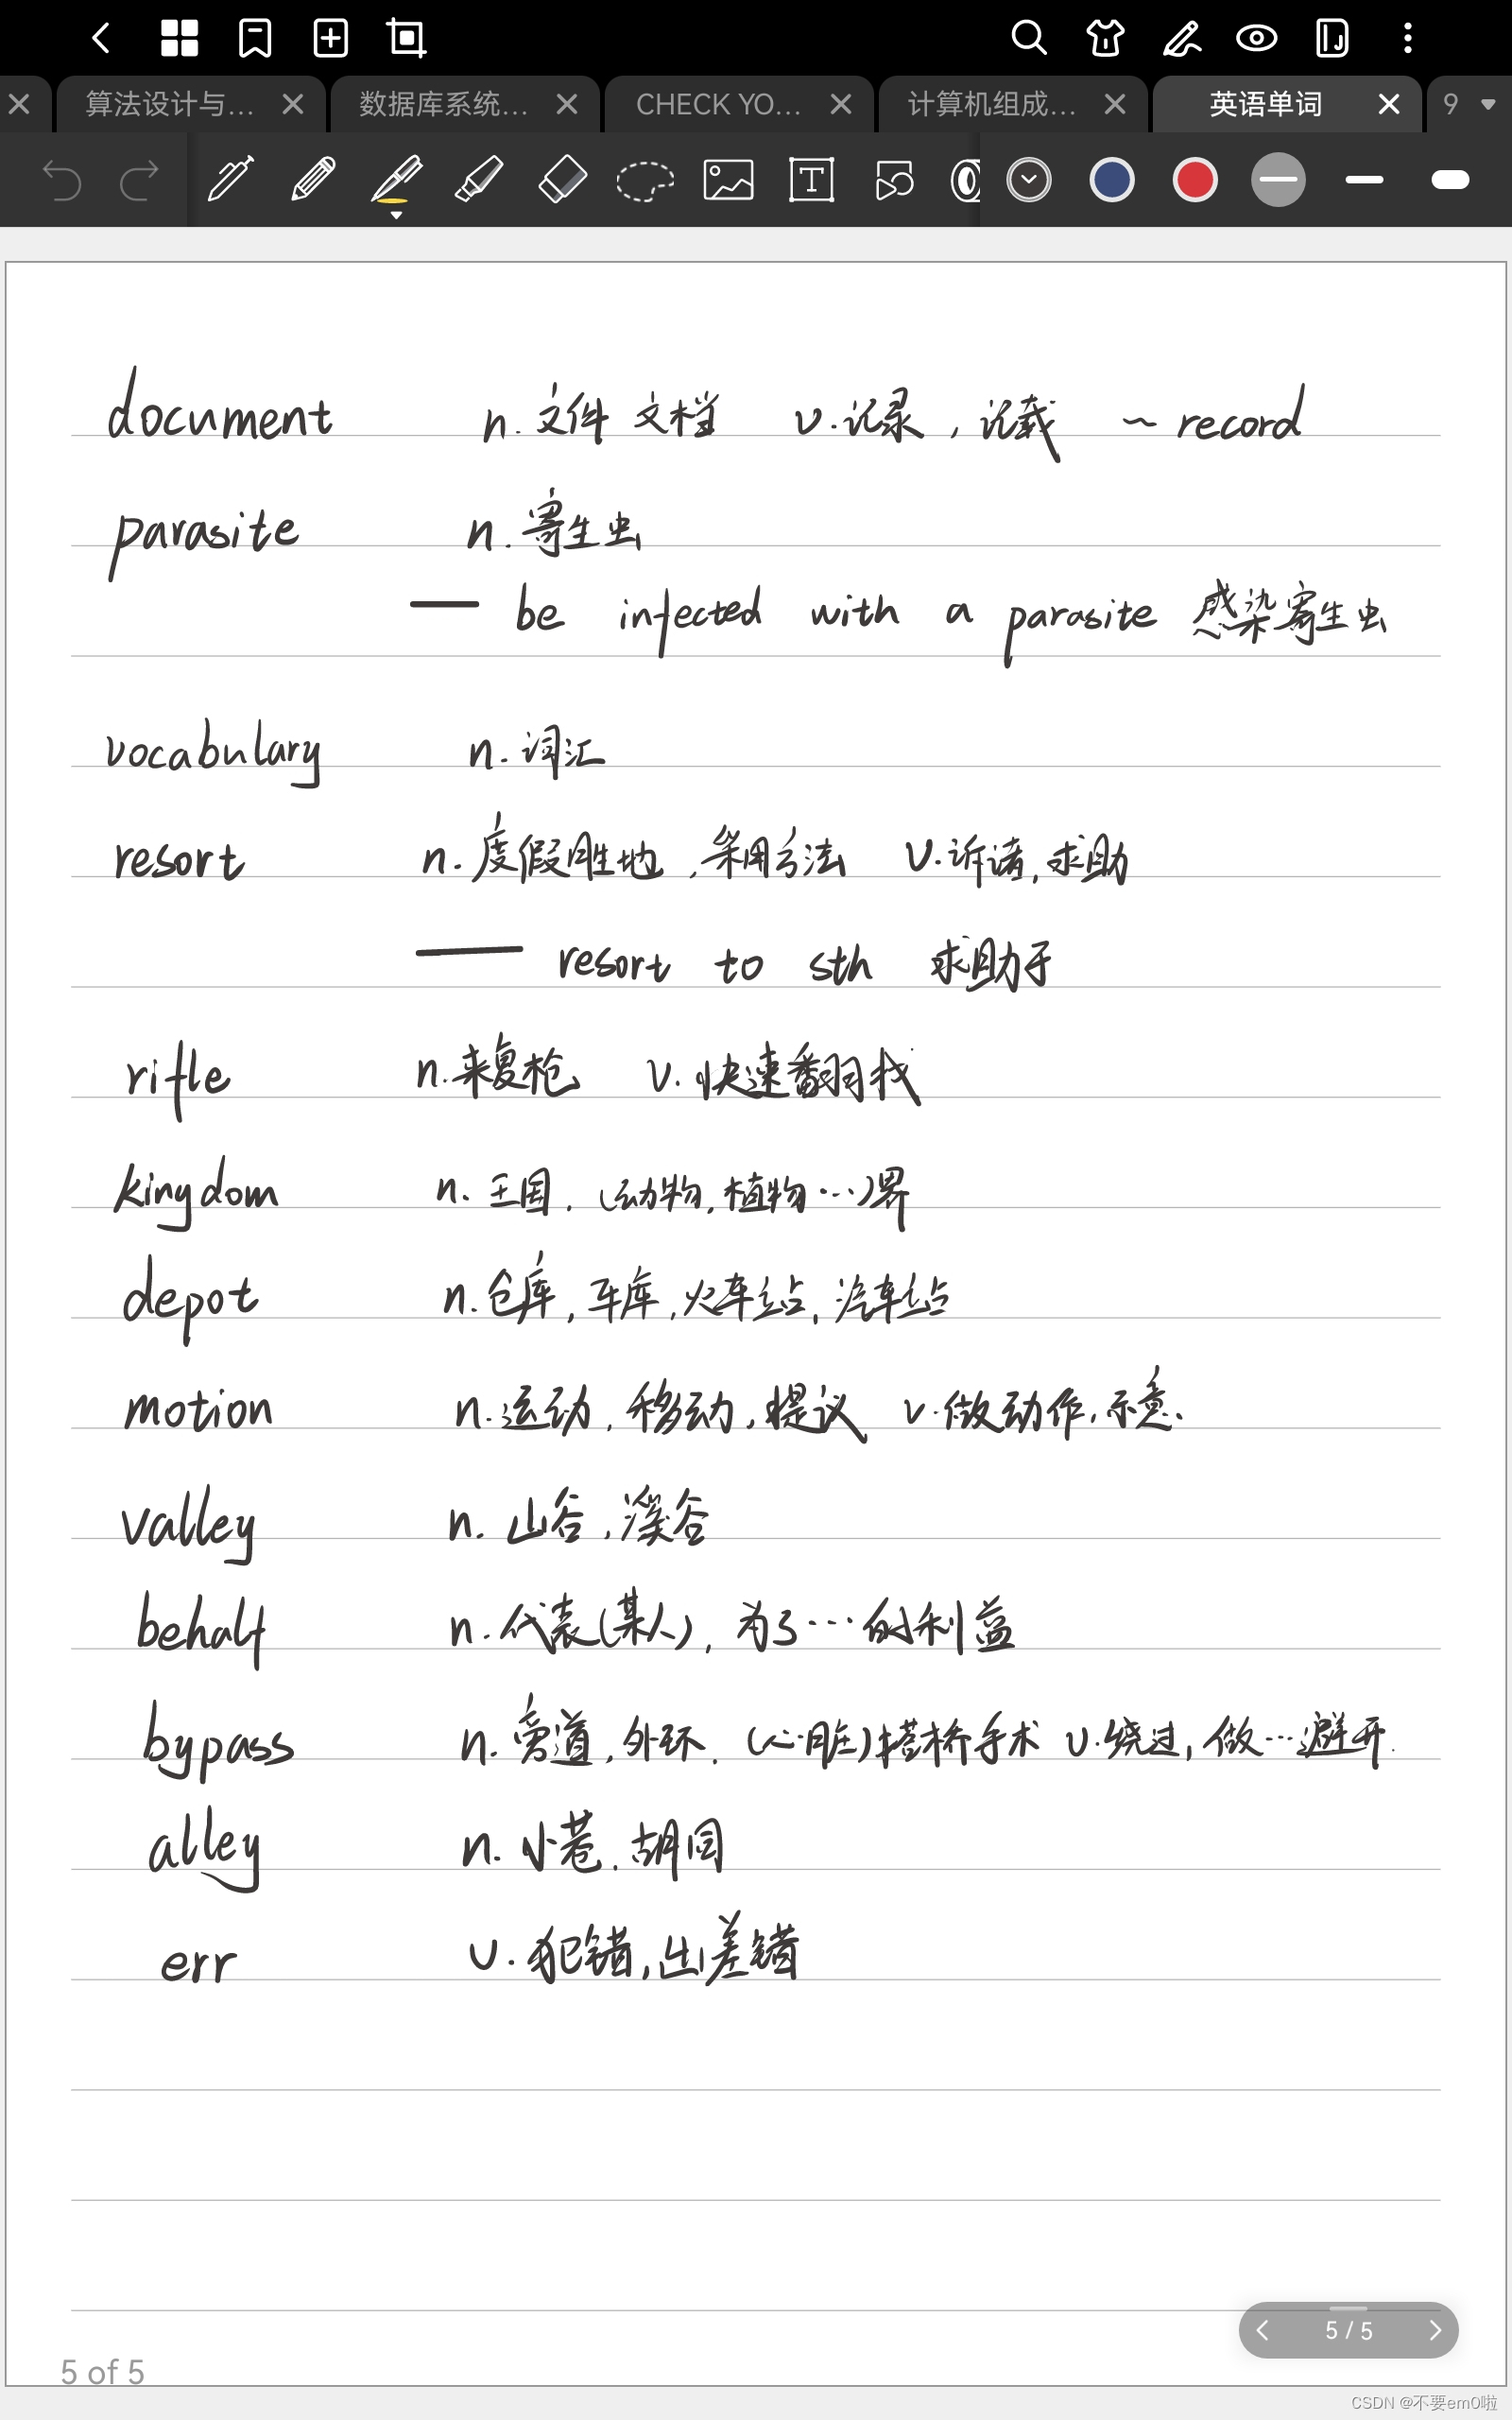 算法设计与... 数据库系统... CHECK YO... 计算机组成... 英语单词 9
document n.文件 文档 v.记录，记载 ~ record
parasite n.寄生虫
— be infected with a parasite 感染寄生虫
vocabulary n.词汇
resort n.度假胜地，采用方法 v.诉诸，求助
— resort to sth 求助于
rifle n.来复枪 v.快速翻找
kingdom n.王国，(动物，植物…)界
depot n.仓库，车库，火车站，汽车站
motion n.运动，移动，提议 v.做动作，示意.
valley n.山谷，溪谷
behalf n.代表(某人)，为了…的利益
bypass n.旁道，外环，(心脏)搭桥手术 v.绕过，做…避开.
alley n.小巷，胡同
err v.犯错，出差错
5 / 5
5 of 5
CSDN @不要em0啦